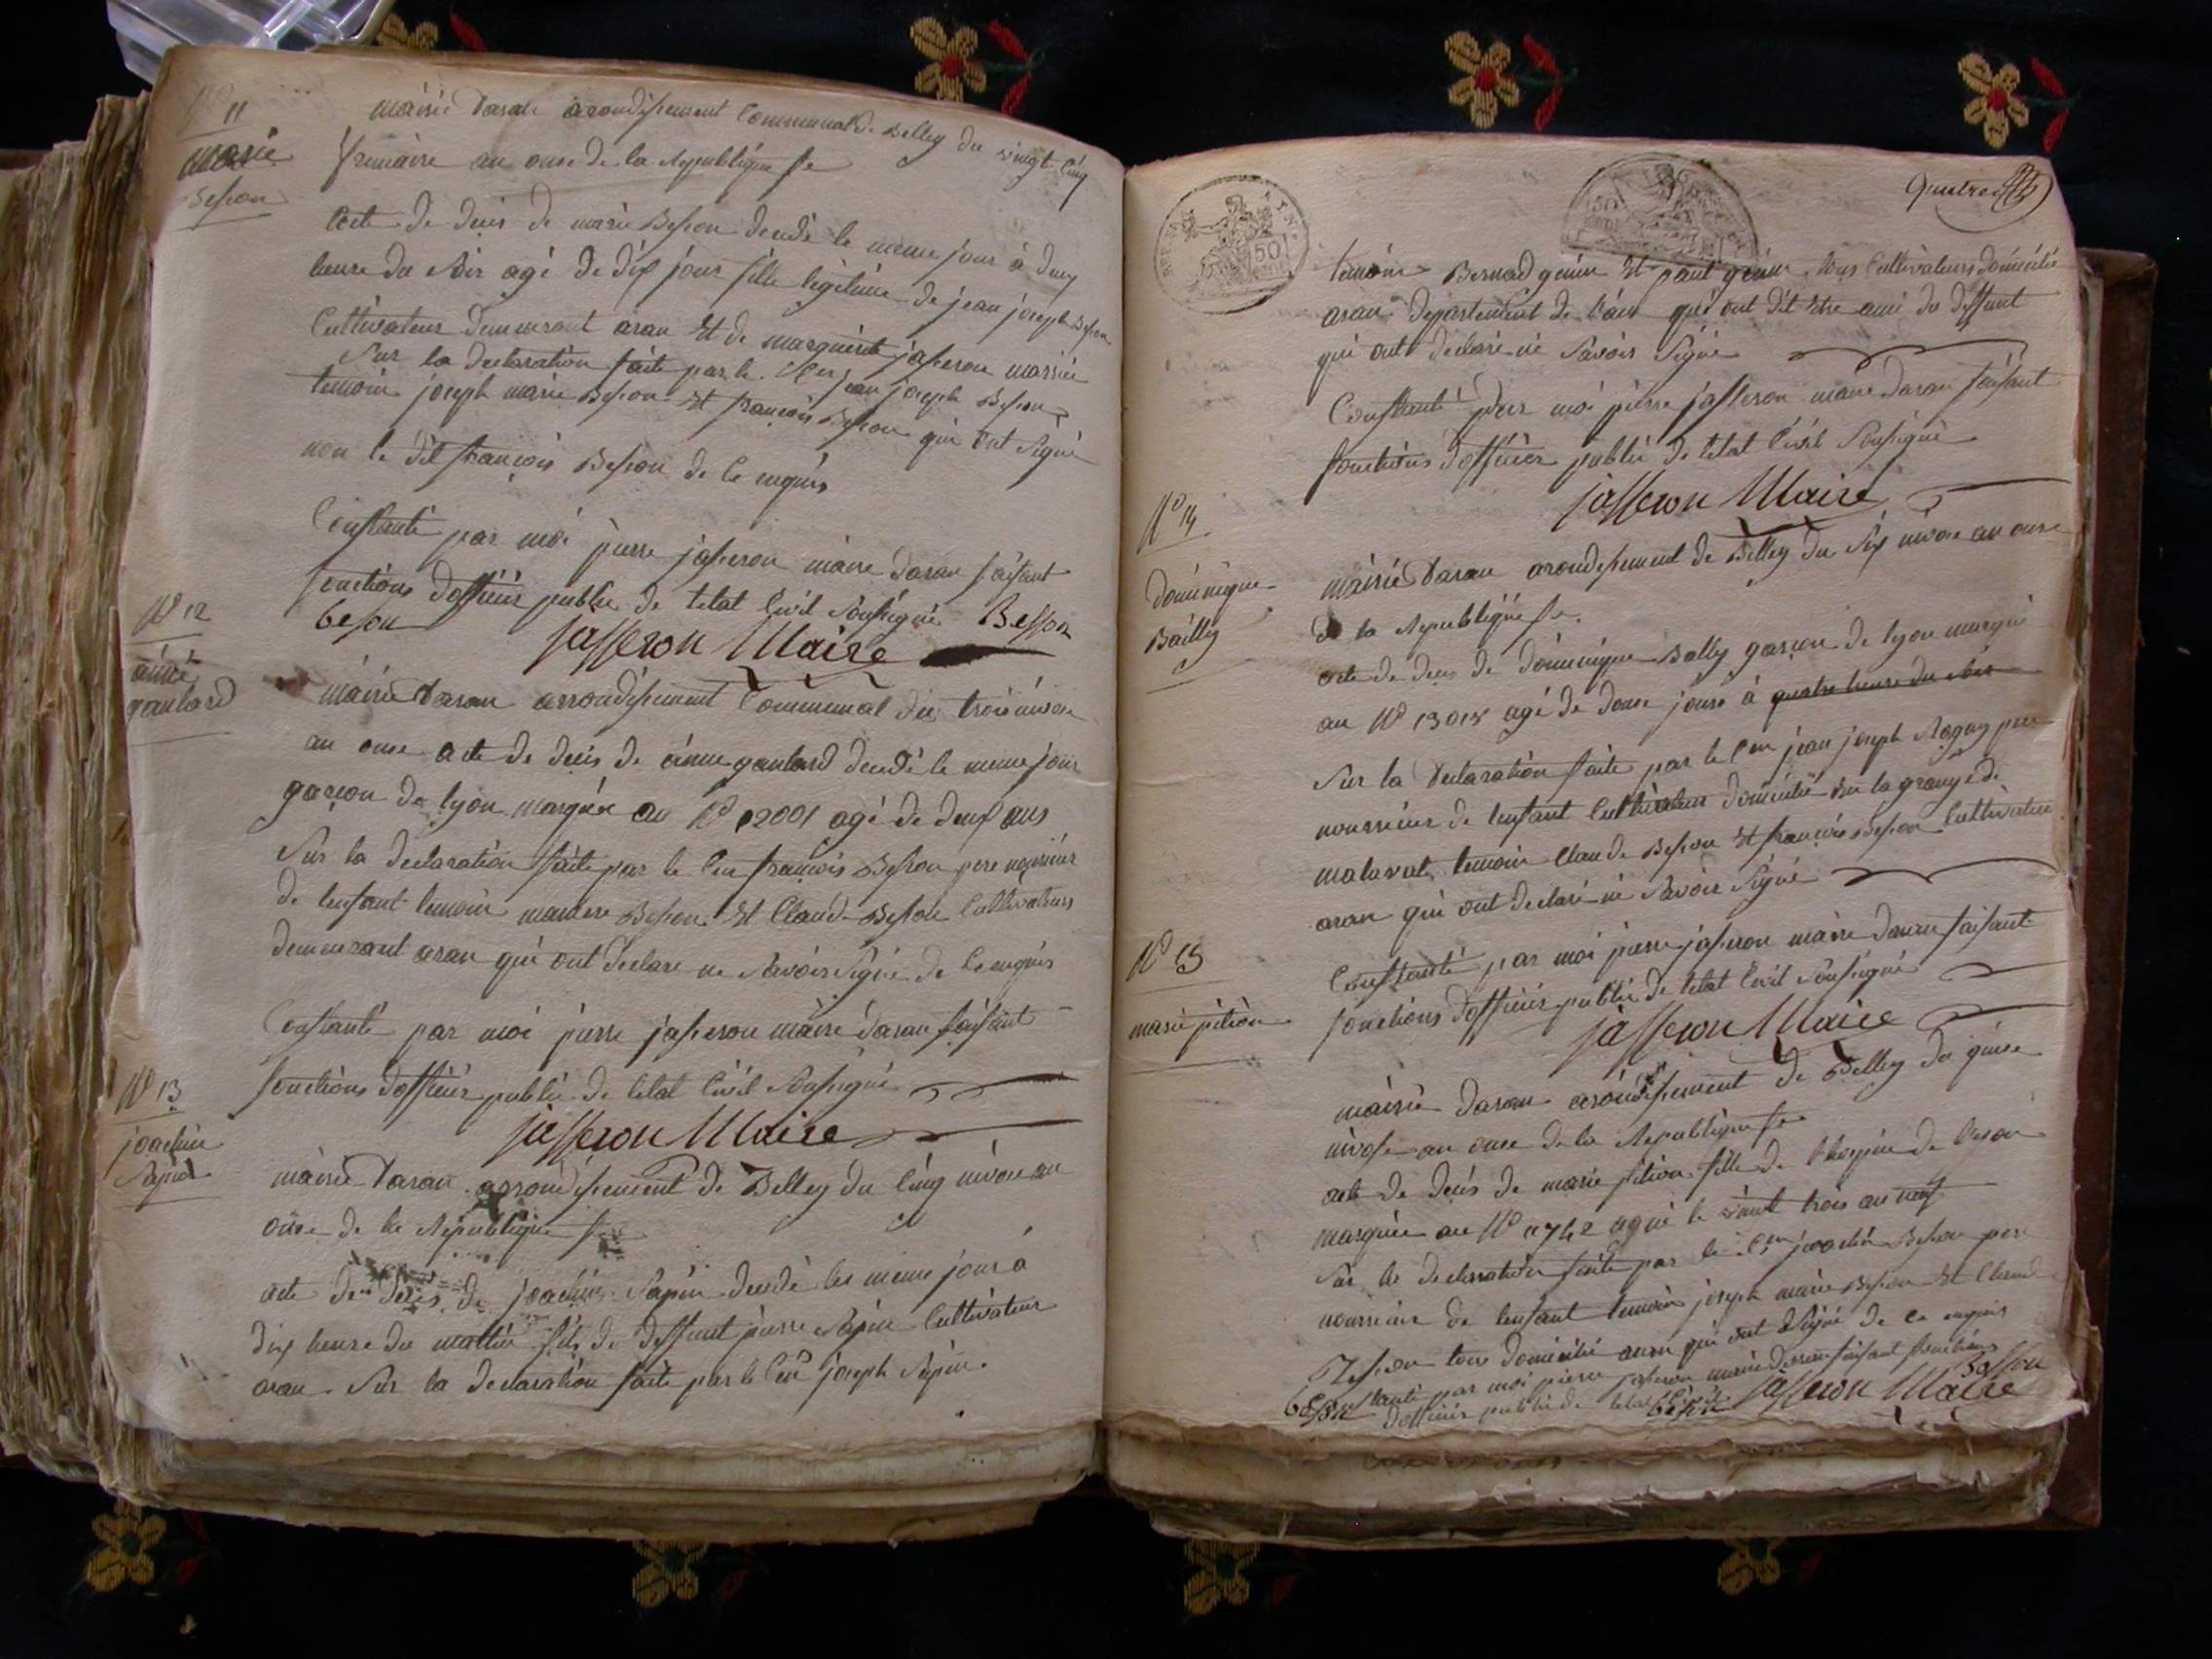 N° 11
marie
Besson
mairie daran arondissement Communal de Belley du vingt cinq
frimaire an onse de la Republique fse
acte de deces de marie Besson decedé le meme jour à deux
heure du soir agé de dix jour fille legitime de jean joseph Besson
Cultivateur demeurant aran et de marguerite jasseron mariée
Sur la declaration faite par le Cen jean joseph Besson
temoin joseph marie Besson et françois Besson qui ont signé
non le dit françois Besson de ce enquis
Constanté par moi pierre jasseron maire daran faisant
fonctions dofficier public de letat Civil Soussigné Besson
beson jasseron Maire
N° 12
aimé
gaulard
mairie daran arrondissement Communal du trois nivose
an onse acte de deces de aimé gaulard decedé le meme jour
garçon de lyon marqué au N° 12001 agé de deux ans
Sur la declaration faite par le Cen françois Besson pere nourricier
de lenfant temoin Besson et Claude Besson Cultivateurs
demeurant aran qui ont declare ne Savoir Signé de ce enquis
Constanté par moi pierre jasseron maire daran faisant
fonctions dofficier public de letat Civil Soussigné
jasseron Maire
N° 13
joachin
Sapin
mairie daran arrondissement de Belley du Cinq nivose an
onse de la Republique fse
acte de deces de joachin Sapin decedé le meme jour à
dix heure du mattin fils de deffunt pierre Sapin Cultivateur
aran. Sur la declaration faite par le Cen joseph Sapin.
50
quatre
temoin Bernard genin et paul genin tous Cultivateurs domicilié
aran departement de lain qui ont dit etre ami du deffunt
qui ont declaré ne Savoir Signé
Constanté par moi pierre jasseron maire daran faisant
fonctions dofficier public de letat Civil Soussigné
jasseron Maire
N° 14
dominique
Bailly
mairie daran arondissement de Belley du Six nivose an onse
de la Republique fse.
acte de deces de dominique Bally garçon de lyon marqué
au N° 13018 agé de douse jours à quatre heure du soir
Sur la declaration faite par le Cen jean joseph pere
nourricier de lenfant Cultivateur domicilié sur la grange de
malaval temoin Claude Besson et françois Besson Cultivateur
aran qui ont declaré ne Savoir Signé
Constanté par moi pierre jasseron maire daran faisant
fonctions dofficier public de letat Civil Soussigné
jasseron Maire
N° 15
marie pition
mairie daran arondissement de Belley du quinse
nivose an onse de la Republique fse
acte de deces de marie pition fille de lhospice de lyon
marquée au N° 11742 le vint trois an neuf
Sur la declaration faite par le Cen joachin Besson pere
nourricier de lenfant temoin joseph marie Besson et Claude
Besson tous domicilié aran qui ont Signé de ce enquis
Constanté par moi pierre jasseron maire daran faisant fonctions
dofficier public de letat Civil
besson beson Besson jasseron Maire